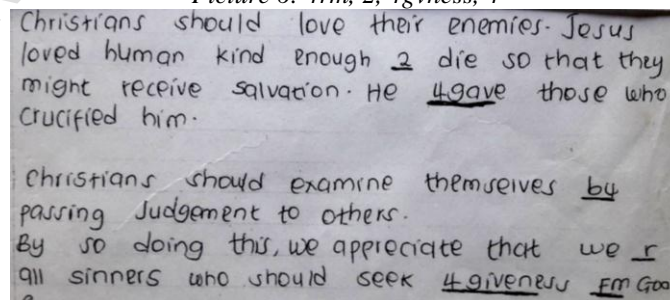 Christians should love their enemies. Jesus
loved human kind enough 2 die so that they
might receive salvation. He 4gave those who
crucified him.
Christians should examine themselves by
passing Judgement to others.
By so doing this, we appreciate that we r
all sinners who should seek 4giveness Fm God